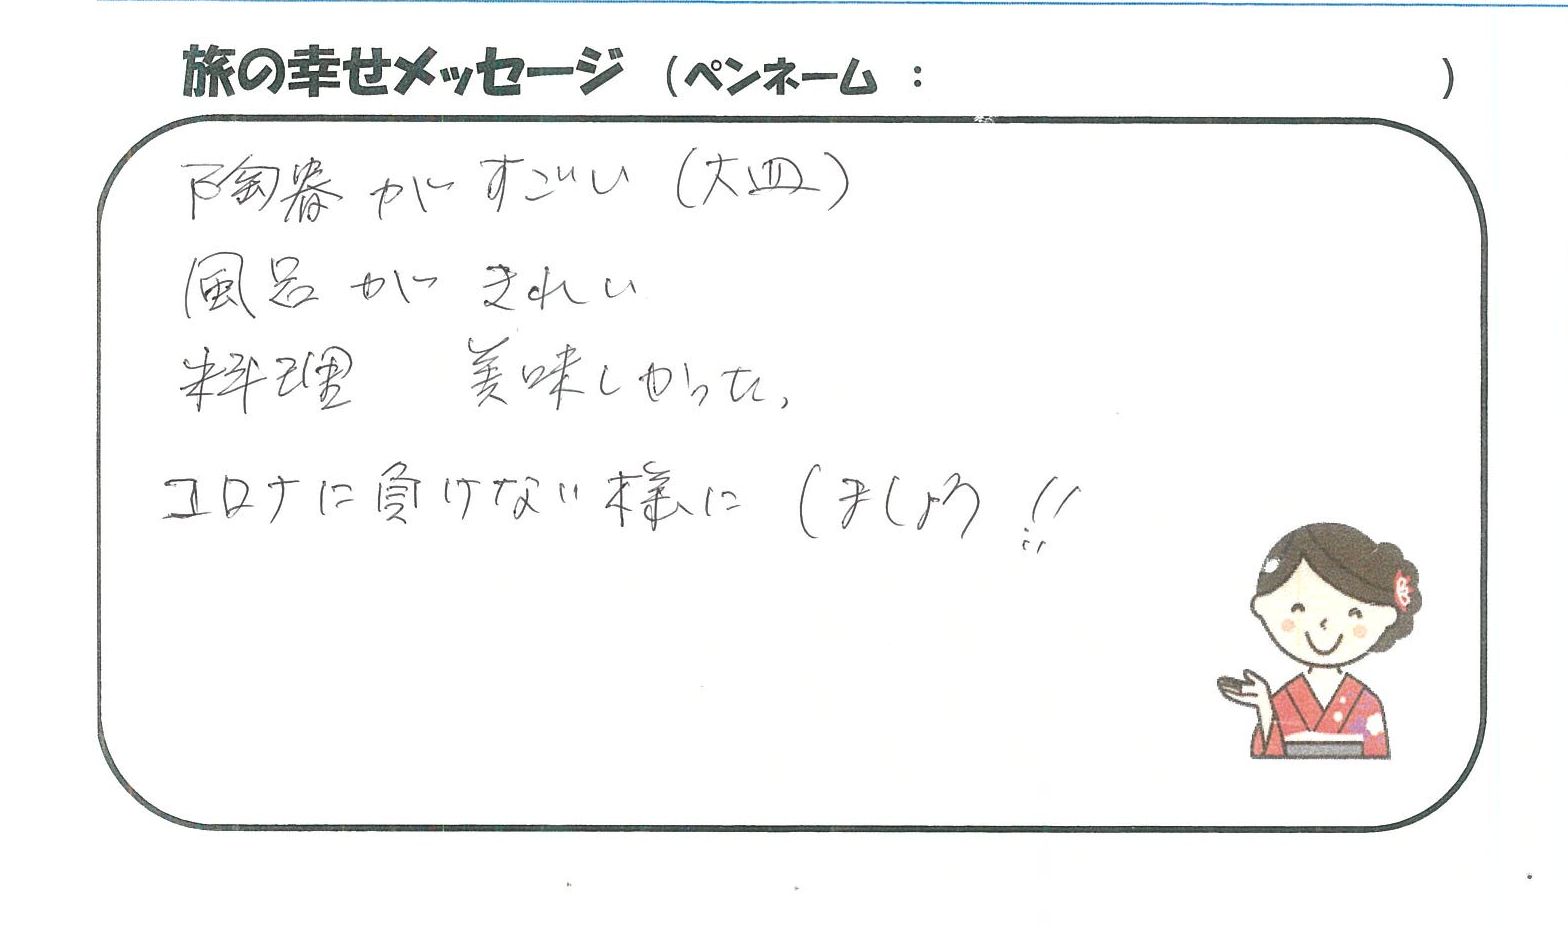 旅の幸せメッセージ（ペンネーム：　）
陶器がすごい（大皿）
風呂がきれい
料理　美味しかった、
コロナに負けない様にしましょう!!